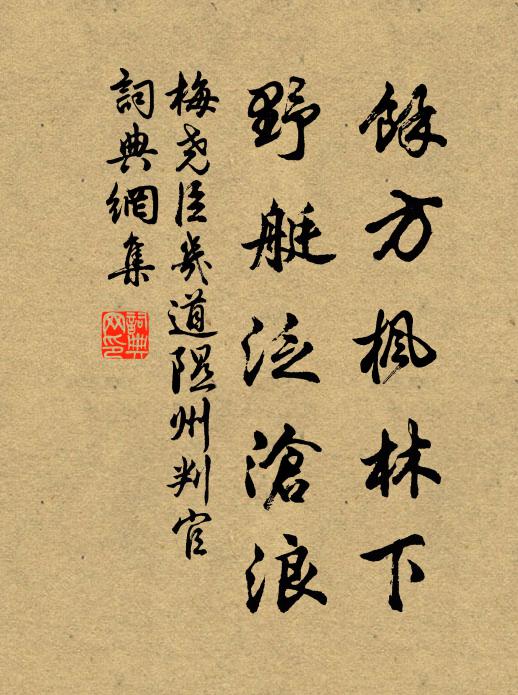 餘方楓林下
野艇泛滄浪
梅堯臣歲道隰州判官
詞典網集
詞典網印